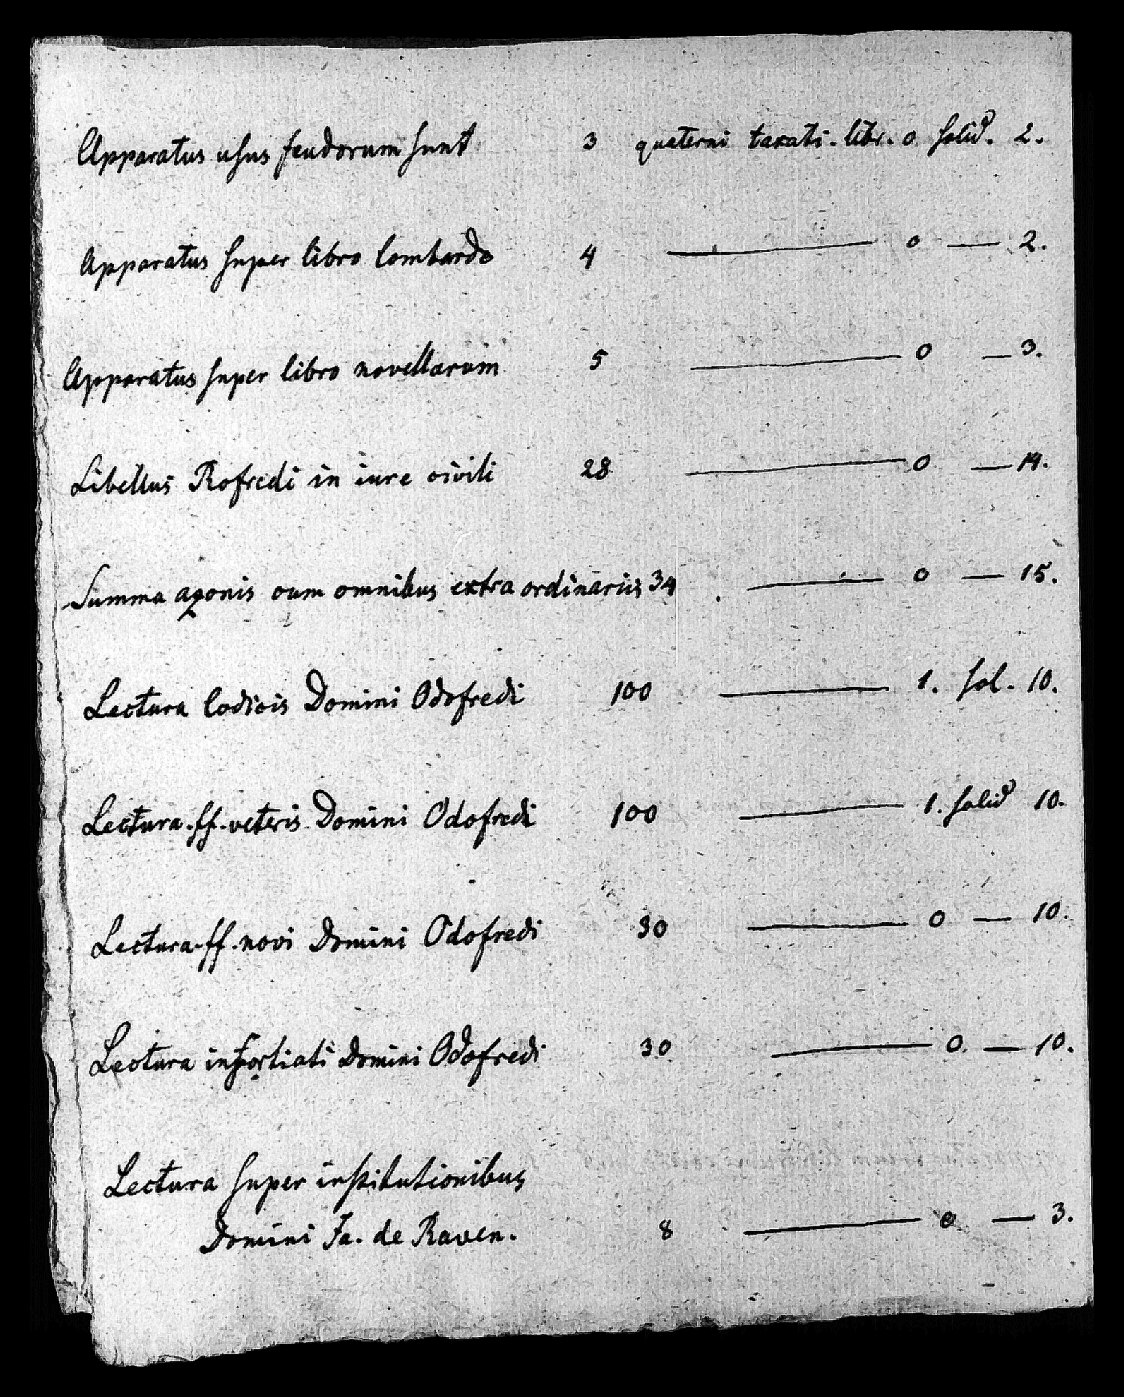 Apparatus usus feudorum sunt 3 quaterni taxati. libr. 0 solid. 2.
Apparatus super libro lombardo 4 — 0 — 2.
Apparatus super libro novellarum 5 — 0 — 3.
Libellus Rofredi in iure civili 28 — 0 — 14.
Summa azonis cum omnibus extraordinariis 34 — 0 — 15.
Lectura Codicis Domini Odofredi 100 — 1. sol. 10.
Lectura. ff. veteris Domini Odofredi 100 — 1. solid 10.
Lectura. ff. novi Domini Odofredi 30 — 0 — 10.
Lectura infortiati Domini Odofredi 30 — 0. — 10.
Lectura super institutionibus
Domini Ja. de Raven. 8 — 0 — 3.